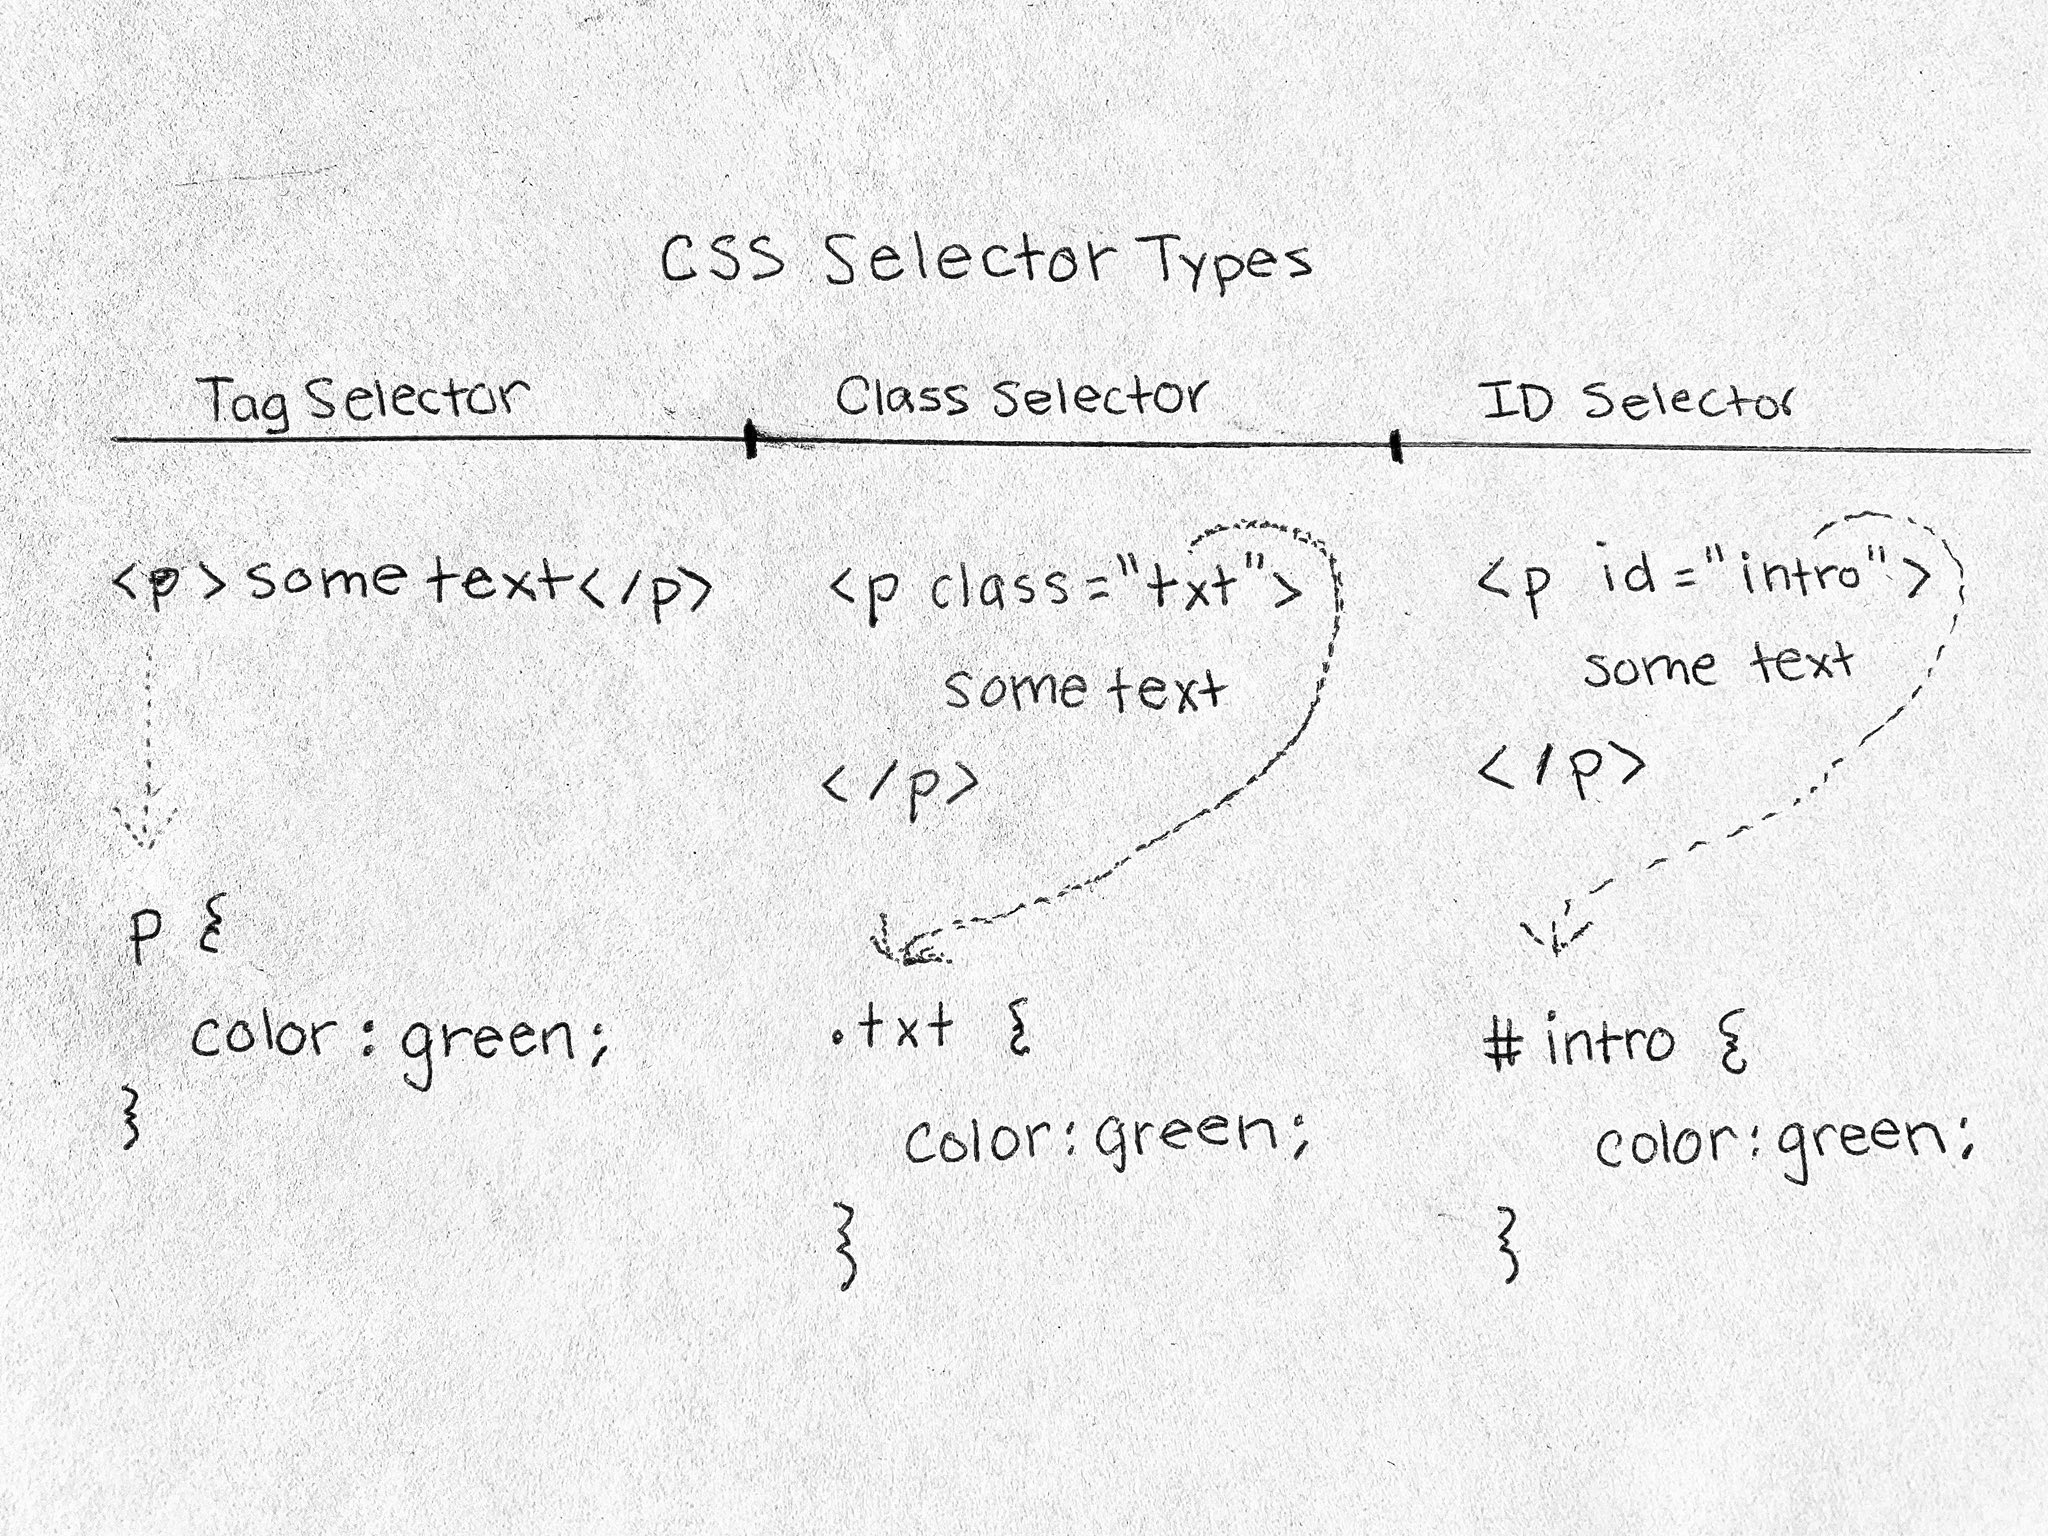 CSS Selector Types
Tag Selector
<p>some text</p>
p {
color: green;
}
Class Selector
<p class="txt">
some text
</p>
.txt {
color: green;
}
ID Selector
<p id="intro">
some text
</p>
#intro {
color: green;
}